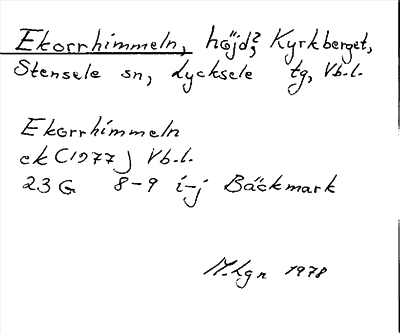 Ekorrhimmeln, höjd?, Kyrkberget,
Stensele sn, Lycksele tg, Vb.l.
Ekorrhimmeln
ek (1977) Vb.l.
23 G 8-9 i-j Bäckmark
M.Lgn 1978